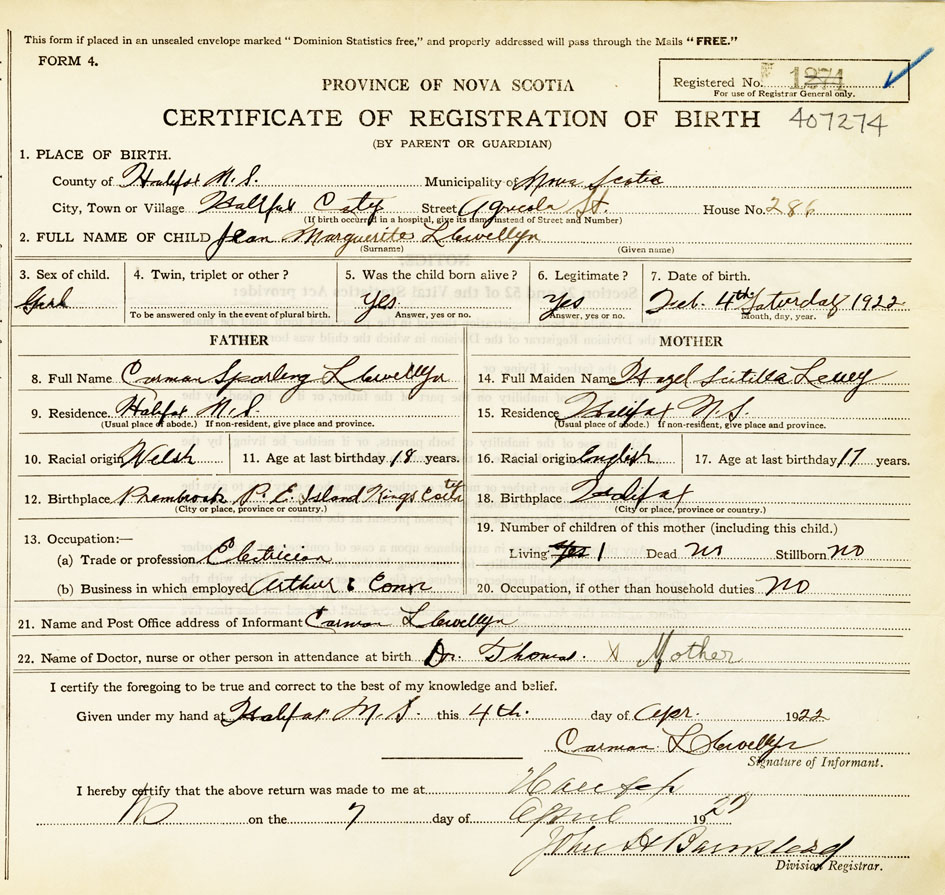 This form if placed in an unsealed envelope marked "Dominion Statistics free," and properly addressed will pass through the Mails "FREE."
FORM 4.
Registered No. 1271
For use of Registrar General only.
PROVINCE OF NOVA SCOTIA
CERTIFICATE OF REGISTRATION OF BIRTH 407274
(BY PARENT OR GUARDIAN)
1. PLACE OF BIRTH.
County of Halifax N.S. Municipality of Nova Scotia
City, Town or Village Halifax City Street Agricola St. House No. 286
(If birth occurred in a hospital, give its name instead of Street and Number)
2. FULL NAME OF CHILD Jean Marguerite Llewellyn
(Surname) (Given name)
3. Sex of child. 4. Twin, triplet or other? 5. Was the child born alive? 6. Legitimate? 7. Date of birth.
Girl Yes Yes Feb. 4th Saturday 1922
To be answered only in the event of plural birth. Answer, yes or no. Answer, yes or no. Month, day, year.
FATHER MOTHER
8. Full Name Carman Sparling Llewellyn 14. Full Maiden Name Hazel
9. Residence. Halifax N.S. 15. Residence Halifax N.S.
(Usual place of abode.) If non-resident, give place and province. (Usual place of abode.) If non-resident, give place and province.
10. Racial origin Welsh 11. Age at last birthday 18 years. 16. Racial origin English 17. Age at last birthday 17 years.
12. Birthplace P. E. Island Kings 18. Birthplace Halifax
(City or place, province or country.) (City or place, province or country.)
13. Occupation:— 19. Number of children of this mother (including this child.)
(a) Trade or profession Eletician Living Yes 1 Dead no Stillborn no
(b) Business in which employed Arthur & Conn 20. Occupation, if other than household duties No
21. Name and Post Office address of Informant Carman Llewellyn
22. Name of Doctor, nurse or other person in attendance at birth Dr. Thomas. X Mother
I certify the foregoing to be true and correct to the best of my knowledge and belief.
Given under my hand at Halifax N.S. this 4th. day of Apr. 1922
Carman Llewellyn
Signature of Informant.
I hereby certify that the above return was made to me at Halifax
NS on the 7 day of April 1922
John H Barnstead
Division Registrar.